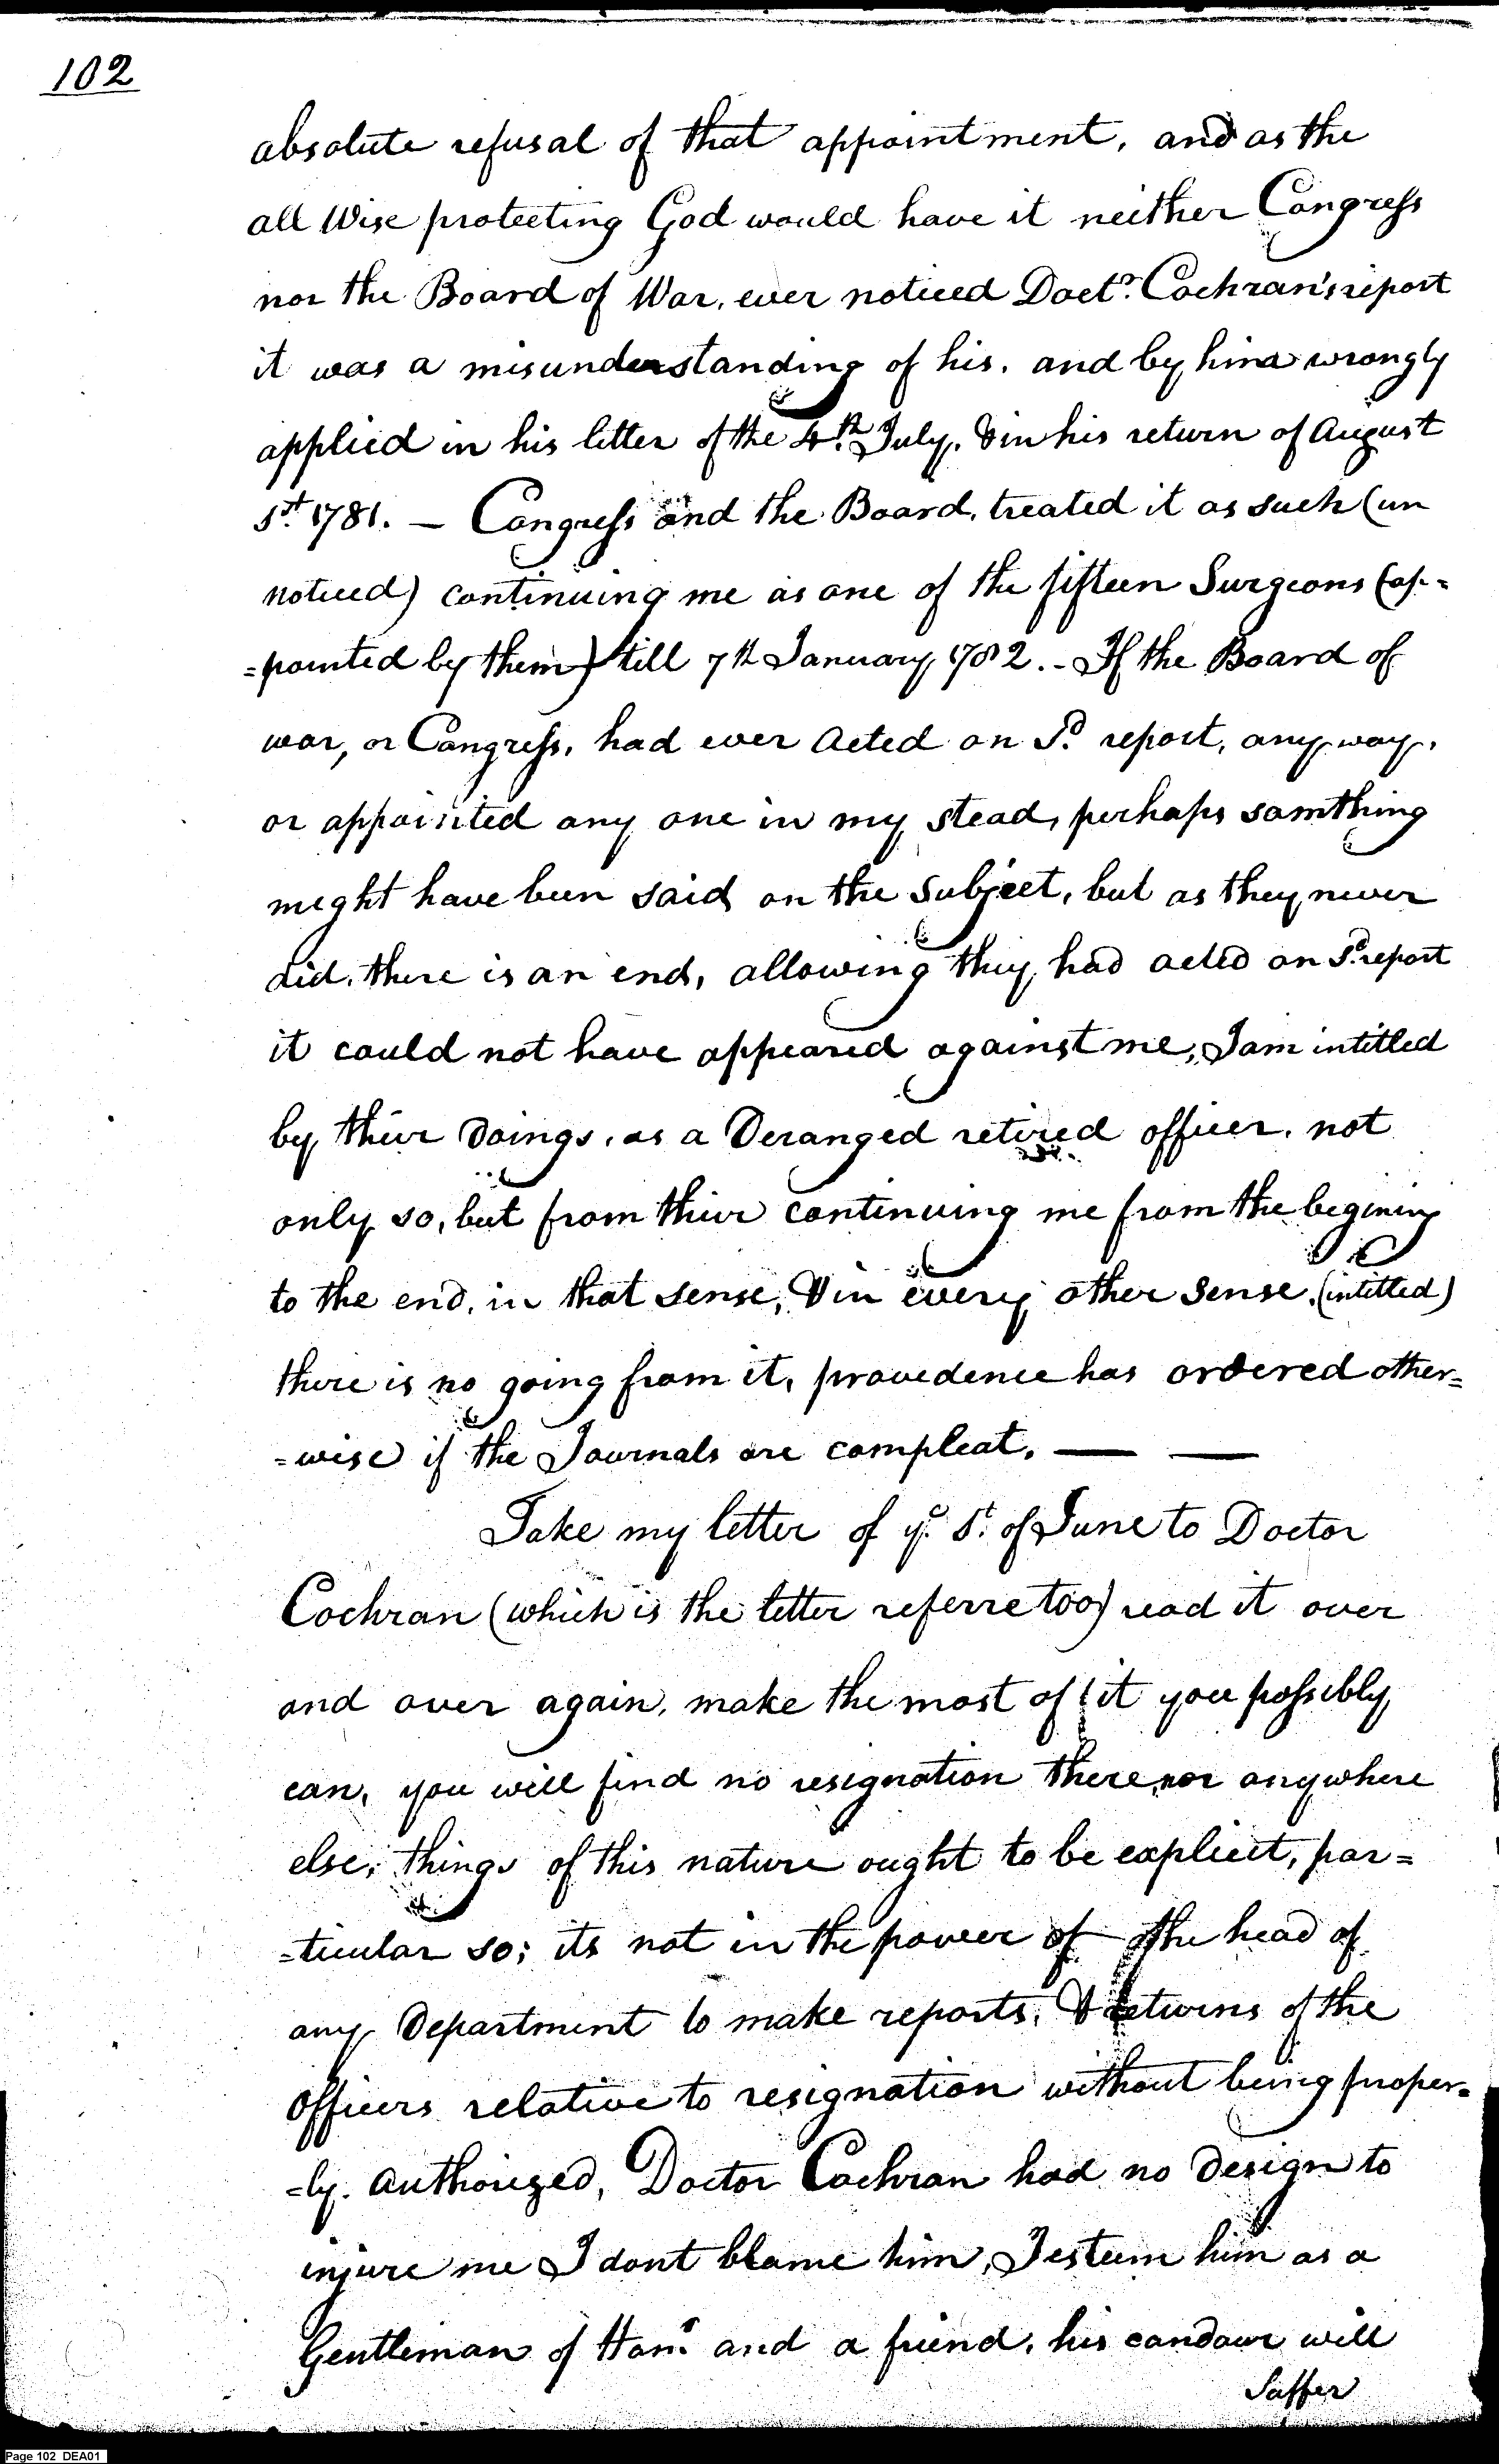 102
absolute refusal of that appointment, and as the
all Wise protecting God would have it neither Congress
nor the Board of War, ever noticed Doctr. Cochran's report
it was a misunderstanding of his, and by him wrongly
applied in his letter of the 4th July, & in his return of August
1st. 1781. — Congress and the Board, treated it as such (un
noticed) continuing me as one of the fifteen Surgeons (ap-
=pointed by them) till 7th January 1782. - If the Board of
war, or Congress, had ever acted on Sd. report, any way,
or appointed any one in my stead, perhaps somthing
meght have been said on the Subject, but as they never
did, there is an end, allowing they had acted on Sd. report
it could not have appeared against me, I am intitled
by thier Doings, as a Deranged retired officer, not
only so, but from thier continuing me from the begining
to the end, in that sense, & in every other sense, (intitled)
there is no going from it, provedence has ordered other=
=wise if the Journals are compleat. — —
Take my letter of ye. 1t. of June to Doctor
Cochran (which is the letter referre too) read it over
and over again, make the most of it you possibly
can, you will find no resignation there, nor anywhere
else, things of this nature ought to be explicit, par=
=ticular so; its not in the power of the head of
any Department to make reports, & returns of the
Officers relative to resignation without being proper=
=ly. authorized, Doctor Cochran had no Design to
injure me I dont blame him, I esteem him as a
Gentleman of Honr. and a friend, his candour will
Suffer
Page 102 DEA01